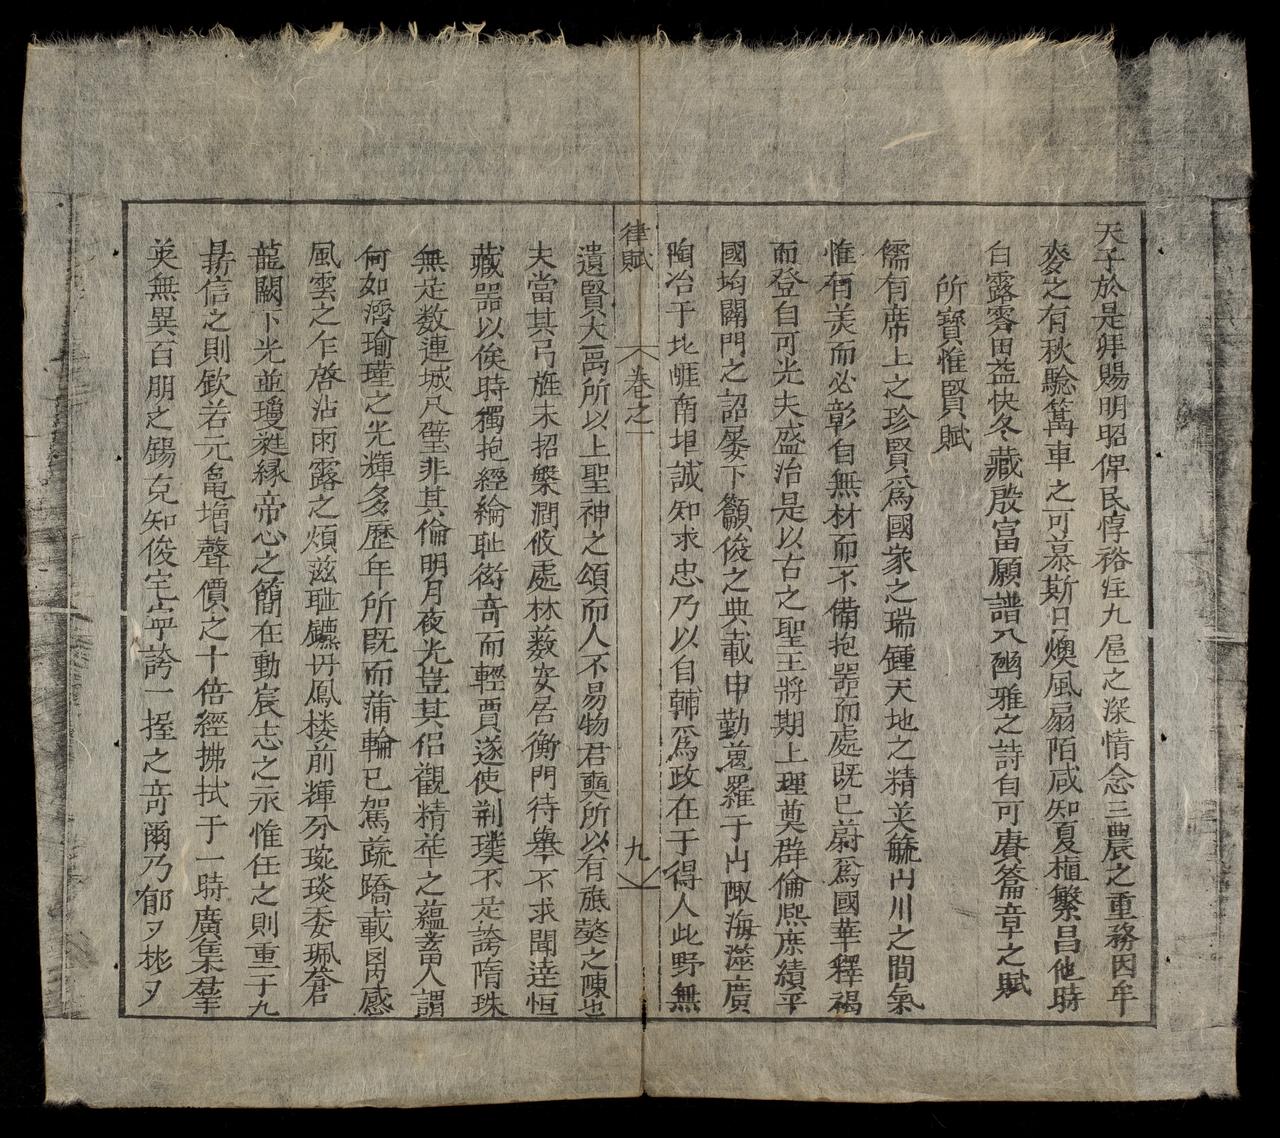 天子於是拜賜明昭俾民惇裕注九扈之深情念三農之重務因牟
麥之有秋驗篝車之可慕斯日燠風扇陌咸知夏植繁昌他時
白露雰田益快冬藏殷富願譜入豳雅之詩自可賡篇章之賦
所寳惟賢賦
儒有席上之珍賢爲國家之瑞鍾天地之精英毓山川之間氣
惟有美而必彰自無材而不備抱器而處既已蔚爲國華釋褐
而登自可光夫盛治是以古之聖王將期上理奠群倫熙庶績平
國均闢門之詔屡下籲俊之典載申勤蒐羅于山陬海澨廣
陶冶于北睚南垠誠知求忠乃以自輔爲政在于得人此野無
律賦 卷之一 九
遺賢大禹所以上聖神之頌而人不易物君奭所以有旅獒之陳也
夫當其弓旌未招槃澗攸處林薮安居衡門待舉不求聞達恒
藏器以俟時獨抱經綸耻衒竒而輕賈遂使荆璞不足誇隋珠
無足数連城尺璧非其倫明月夜光豈其侣觀精華之蘊蓄人謂
何如濟瑜瑾之光輝多歷年所既而蒲輪已駕蔬蹻載 感
風雲之乍啓沾雨露之頻兹 鑣丹鳳楼前輝分琬琰委珮蒼
龍闕下光並瓊 縁帝心之簡在動宸志之永惟任之則重于九
鼎信之則欽若元龜增聲價之十倍經拂拭于一時廣集羣
英無異百朋之錫克知俊宅寕誇一握之竒爾乃郁〻彬〻